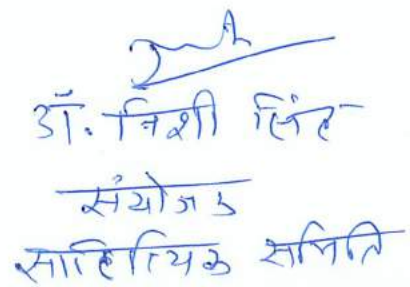 डॉ. निशी सिंह
संयोजक
साहित्यिक समिति